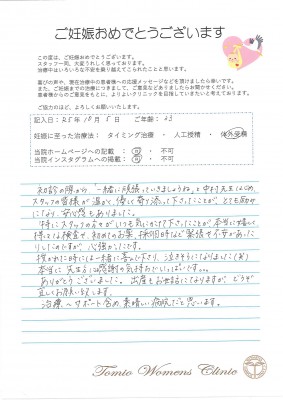 ご妊娠おめでとうございます
この度は、妊娠おめでとうございます。
スタッフ一同、大変うれしく思っております。
治療中はいろいろな不安を乗り越えてこられたことと思います。
喜びの声や、現在治療中の患者様への応援メッセージなどを頂けましたら幸いです。
また、妊娠までの治療につきまして、ご意見などありましたらお聞かせください。
患者様からのご意見をもとに、よりよいクリニックを目指していきたいと考えております。
ご協力のほど、よろしくお願いいたします。
記入日:R5年10月5日 ご年齢:33
妊娠に至った治療法: タイミング治療 ・ 人工授精 ・ 体外受精
当院ホームページへの記載 : 可 ・ 不可
当院インスタグラムへの掲載 : 可 ・ 不可
初診の際から「一緒に頑張っていきましょうね」と中村先生はじめ、
スタッフの皆様が温かく、優しく寄り添って下さったことが、とても励み
になり、安心感もありました。
特にスタッフの方々がいつも気にかけて下さったことが本当に嬉しく
検査や、初めてのお薬、採卵時など緊張や不安があった
りしたのですが、心強かったです。
授かれた時には一緒に喜んで下さり、泣きそうになりました(笑)
本当に先生方には感謝の気持ちでいっぱいです。
ありがとうございました。出産もお世話になりますが、どうぞ
宜しくお願い致します。
治療、サポート含め、素晴しい病院だと思います。
Tomio Womens Clinic